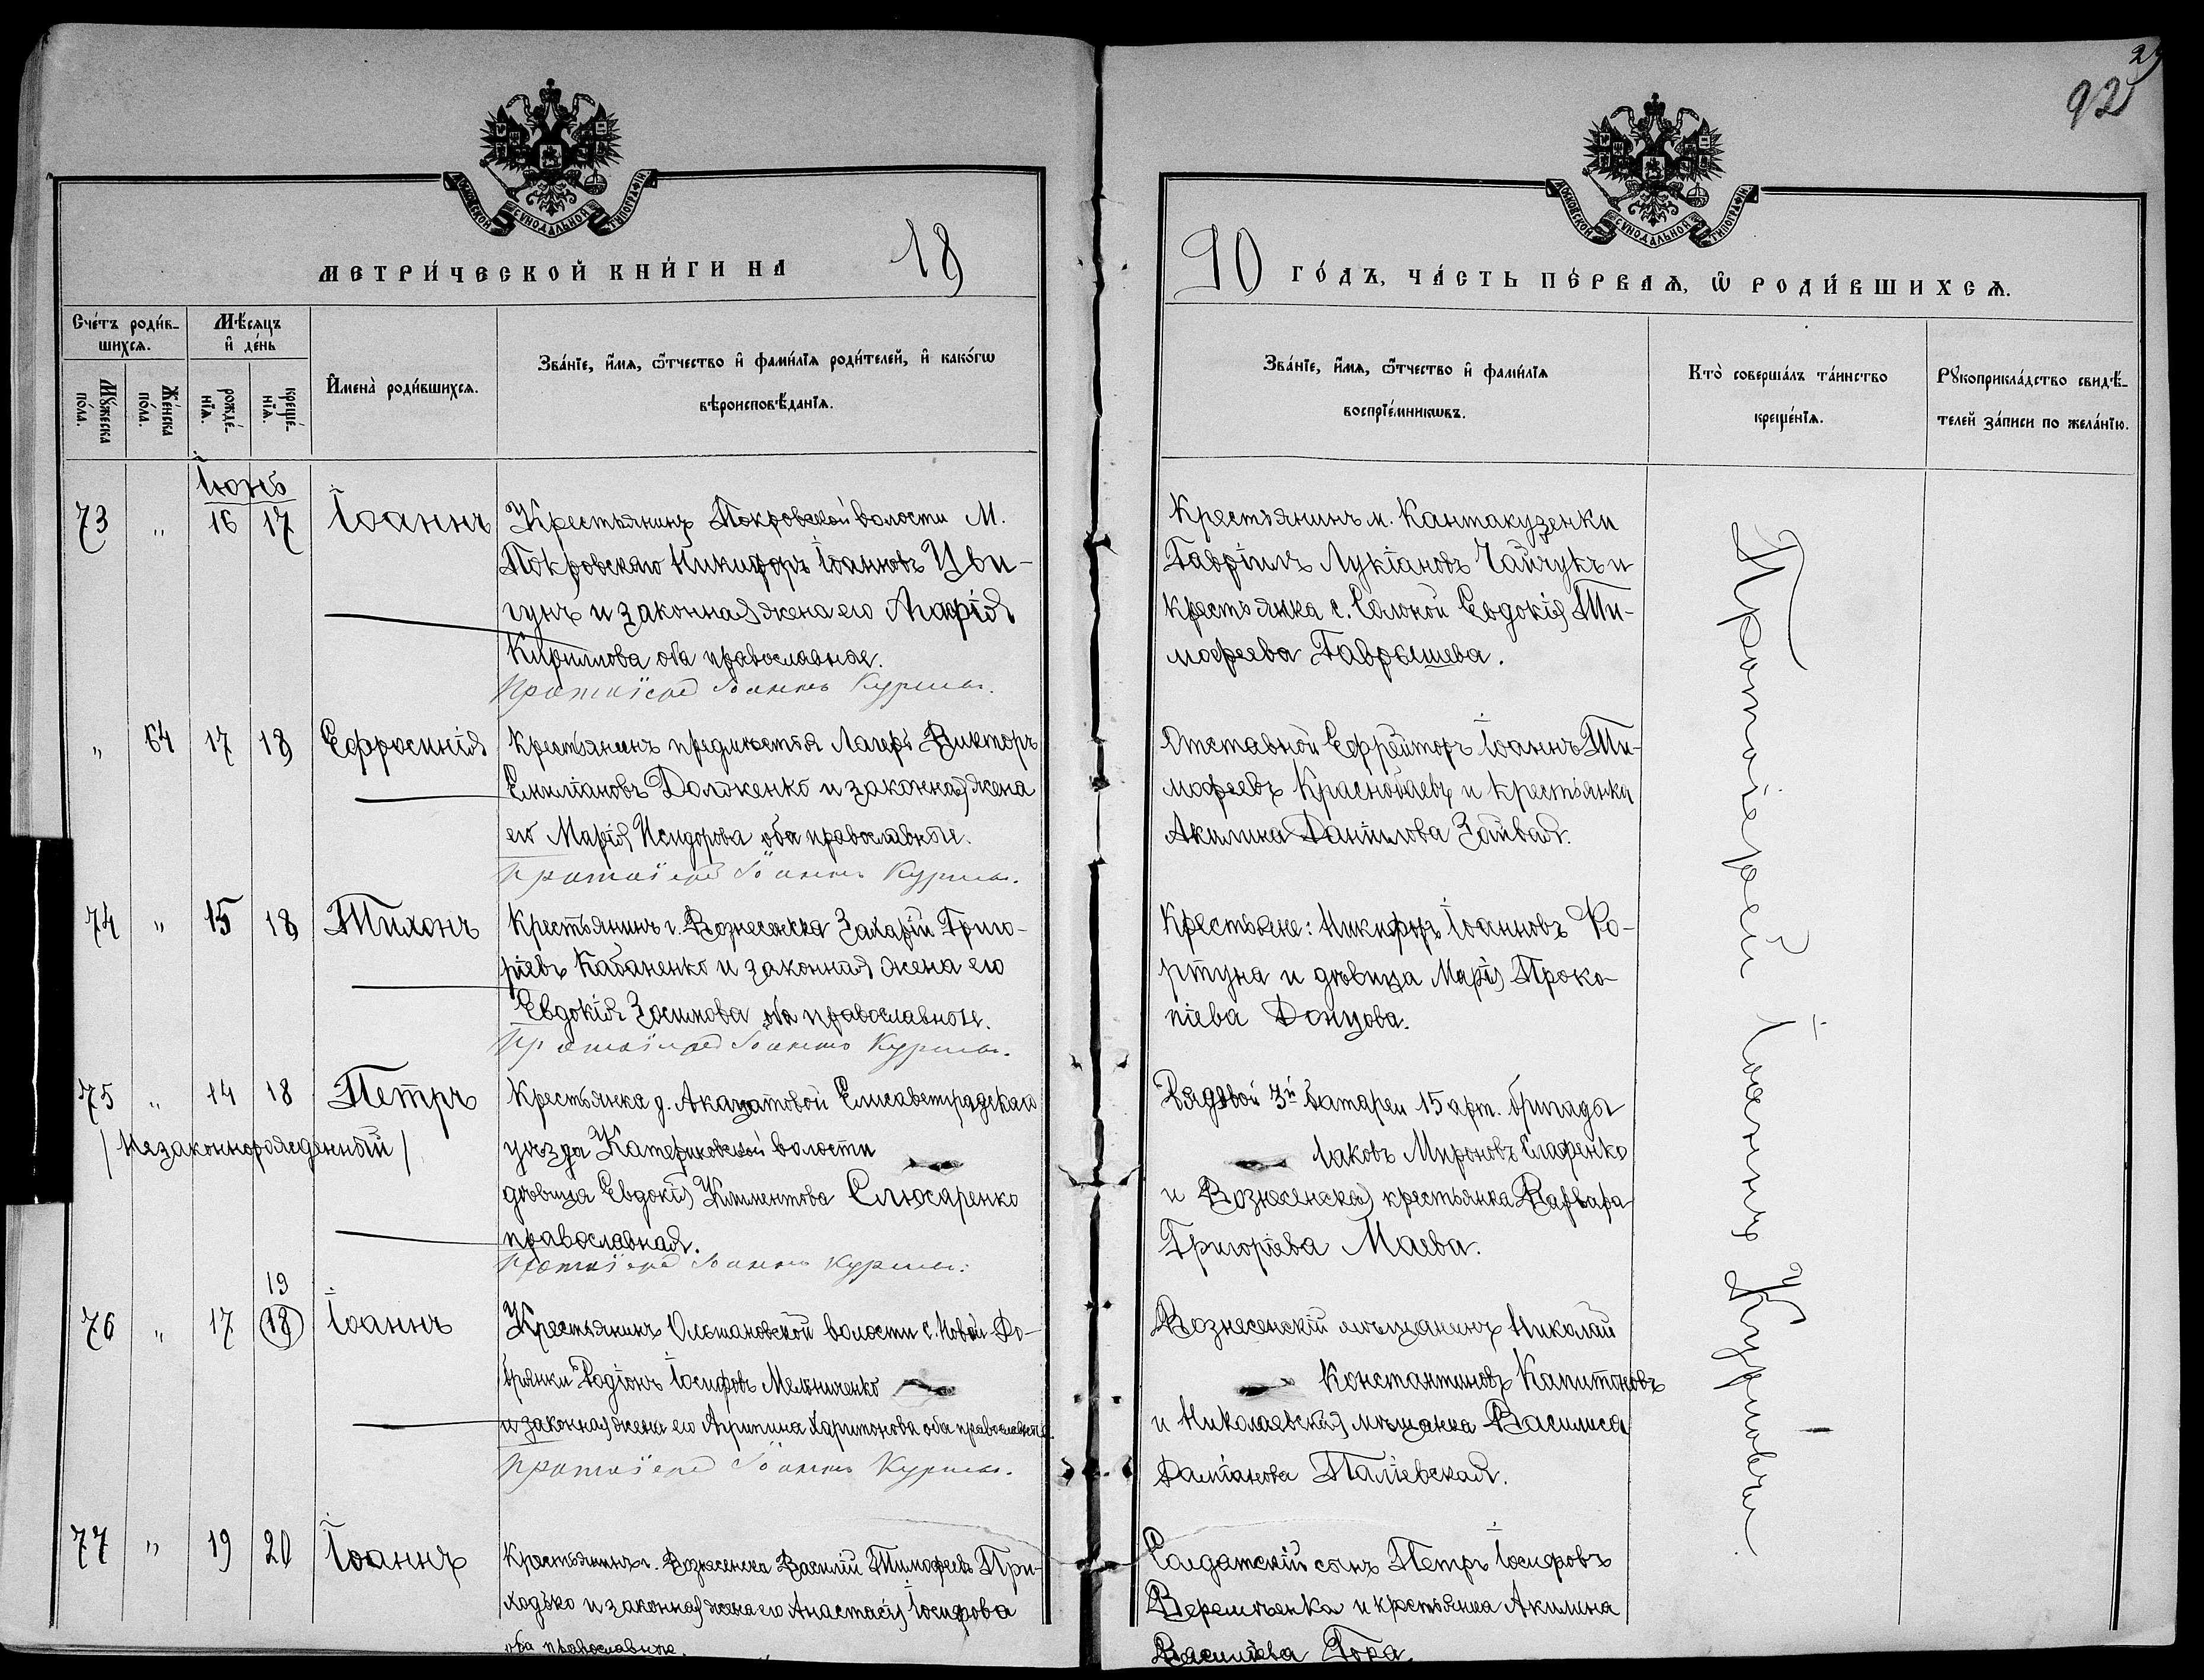 29
92
МОСКОВСКОЙ СѴНОДАЛЬНОЙ ТИПОГРАФІИ
МОСКОВСКОЙ СѴНОДАЛЬНОЙ ТИПОГРАФІИ
МЕТРИ́ЧЕСКОЙ КНИ́ГИ НА 18
90 ГО́ДЪ, ЧА́СТЬ ПЕ́РВАѦ, Ѡ РОДИ́ВШИХСѦ.
Сче́тъ роди́в-
шихсѧ.
Мꙋ́жеска
по́ла.
Же́нска
по́ла.
Мѣ́сяцъ
и҆ де́нь
рожде́-
нїѧ.
креще́-
нїѧ.
И҆мена̀ роди́вшихсѧ.
Зва́нїе, и҆́мѧ, ѻ҆́тчество и҆ фами́лїѧ роди́телей, и҆ како́гѡ
вѣроисповѣ́данїѧ.
Зва́нїе, и҆́мѧ, ѻ҆́тчество и҆ фами́лїѧ
воспрїе́мникѡвъ.
Кто̀ соверша́лъ та́инство
креще́нїѧ.
Рꙋкоприкла́дство свидѣ́-
телей за́писи по жела́нїю.
Іюнь
73 " 16 17 Іоаннъ
Крестьянинъ Покровской волости м.
Покровскаго Никифоръ Іоанновъ Цви-
гунъ и законная жена его Агафія
Кириллова оба православные.
Протоіерей Іоаннъ
Крестьянинъ м. Кантакузенки
Гавріилъ Лукіановъ Чайчукъ и
крестьянка с. Евдокія Ти-
мофеева Гаврышева.
" 64 17 18 Ефросинія
Крестьянинъ предмѣстья Лагерь Викторъ
Емиліановъ Доложенко и законная жена
его Марія Исидорова оба православные.
Протоіерей Іоаннъ
Отставной Ефрейторъ Іоаннъ Ти-
мофеевъ и крестьянка
Акилина Данилова Зайвая.
74 " 15 18 Тихонъ
Крестьянинъ г. Вознесенска Захарій Григо-
ріевъ Кабаненко и законная жена его
Евдокія Зосимова оба православные.
Протоіерей Іоаннъ
Крестьяне: Никифоръ Іоанновъ Фо-
ртуна и дѣвица Марія Проко-
піева Донцова.
75 " 14 18 Петръ
/ Незаконнорожденный /
Крестьянка д. Акацатовой Елисаветградскаго
уѣзда Катериновской волости
дѣвица Евдокія Климентова Слюсаренко
православная.
Протоіерей Іоаннъ
Рядовой 3й батареи 15 арт. бригады
Іаковъ Мироновъ
и Вознесенская крестьянка Варвара
Григоріева Маева.
19
76 " 17 18 Іоаннъ
Крестьянинъ Ольшановской волости с. Новой До-
брянки Родіонъ Іосифовъ Мельниченко
и законная жена его Агрипина Харитонова оба православные.
Протоіерей Іоаннъ
Вознесенскій мѣщанинъ Николай
Константиновъ Капитоновъ
и Николаевская мѣщанка Василиса
Даміанова Паліевская.
77 " 19 20 Іоаннъ
Крестьянинъ г. Вознесенска Василій Тимофеевъ При-
ходько и законная жена его Анастасія Іосифова
оба православные.
Солдатскій сынъ Петръ Іосифовъ
Веремѣенка и крестьянка Акилина
Василіева Гора.
Протоіерей Іоаннъ